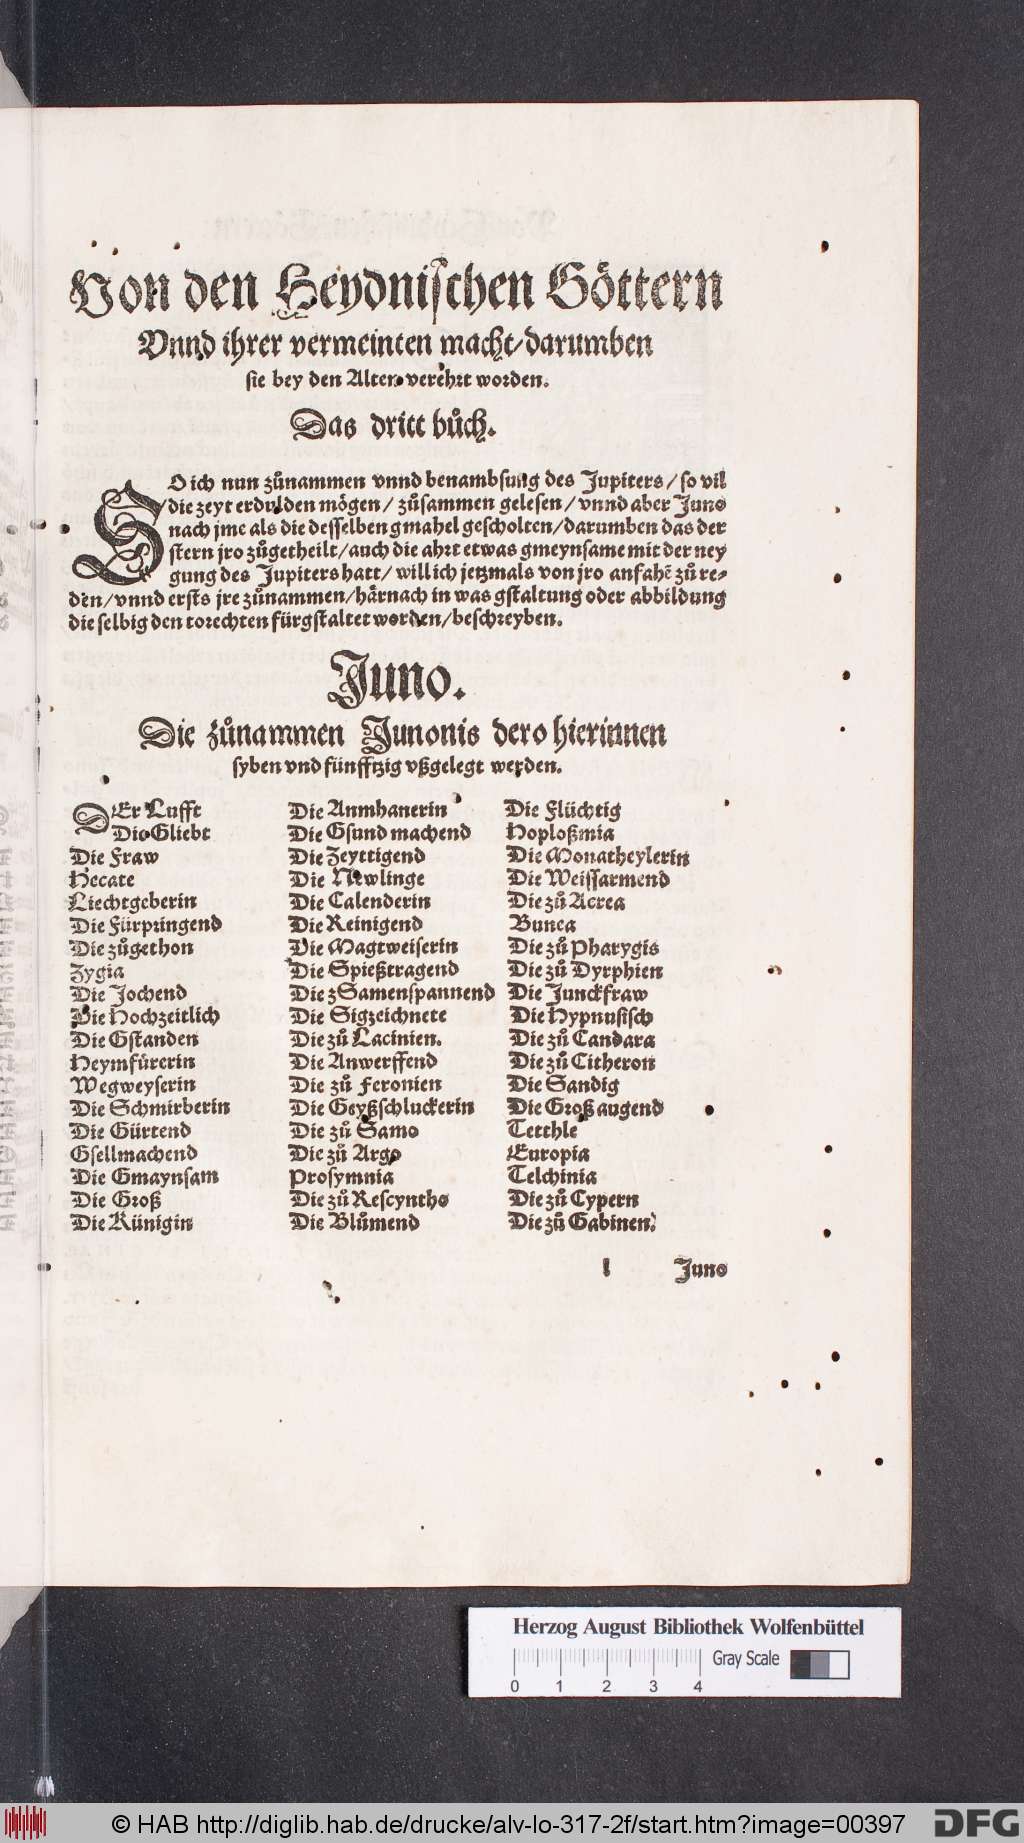 Von den Heydnischen Göttern
Vnnd ihrer vermeinten macht/darumben
sie bey den Alten verehrt worden.
Das dritt bůch.
SO ich nun zůnammen vnnd benambsung des Jupiters/so vil
die zeyt erdulden mögen/zůsammen gelesen/vnnd aber Juno
nach jme als die desselben gmahel gescholten/darumben das der
stern jro zůgetheilt/auch die ahrt etwas gmeynsame mit der ney
gung des Jupiters hatt/will ich jetzmals von jro anfahē zů re-
den/vnnd ersts jre zůnammen/härnach in was gstaltung oder abbildung
die selbig den torechten fürgstaltet worden/beschreyben.
Juno.
Die zůnammen Junonis dero hierinnen
syben vnd fünfftzig vßgelegt werden.
DEr Lufft
Die Gliebt
Die Fraw
Hecate
Liechtgeberin
Die Fürpringend
Die zůgethon
Zygia
Die Jochend
Die Hochzeitlich
Die Gstanden
Heymfürerin
Wegweyserin
Die Schmirberin
Die Gürtend
Gsellmachend
Die Gmaynsam
Die Groß
Die Künigin
Die Anmhanerin
Die Gsund machend
Die Zeyttigend
Die Newlinge
Die Calenderin
Die Reinigend
Die Magtweiserin
Die Spießtragend
Die zSamenspannend
Die Sigzeichnete
Die zů Lacinien.
Die Anwerffend
Die zů Feronien
Die Geyßschluckerin
Die zů Samo
Die zů Argo
Prosymnia
Die zů Rescyntho
Die Blůmend
Die Flüchtig
Hoploßmia
Die Monatheylerin
Die Weissarmend
Die zů Acrea
Bunea
Die zů Pharygis
Die zů Dyrphien
Die Junckfraw
Die Hypnusisch
Die zů Candara
Die zů Citheron
Die Sandig
Die Großaugend
Tetthle
Europia
Telchinia
Die zů Cypern
Die zů Gabinen.
Juno
Herzog August Bibliothek Wolfenbüttel
0 1 2 3 4 Gray Scale
© HAB http://diglib.hab.de/drucke/alv-lo-317-2f/start.htm?image=00397 DFG